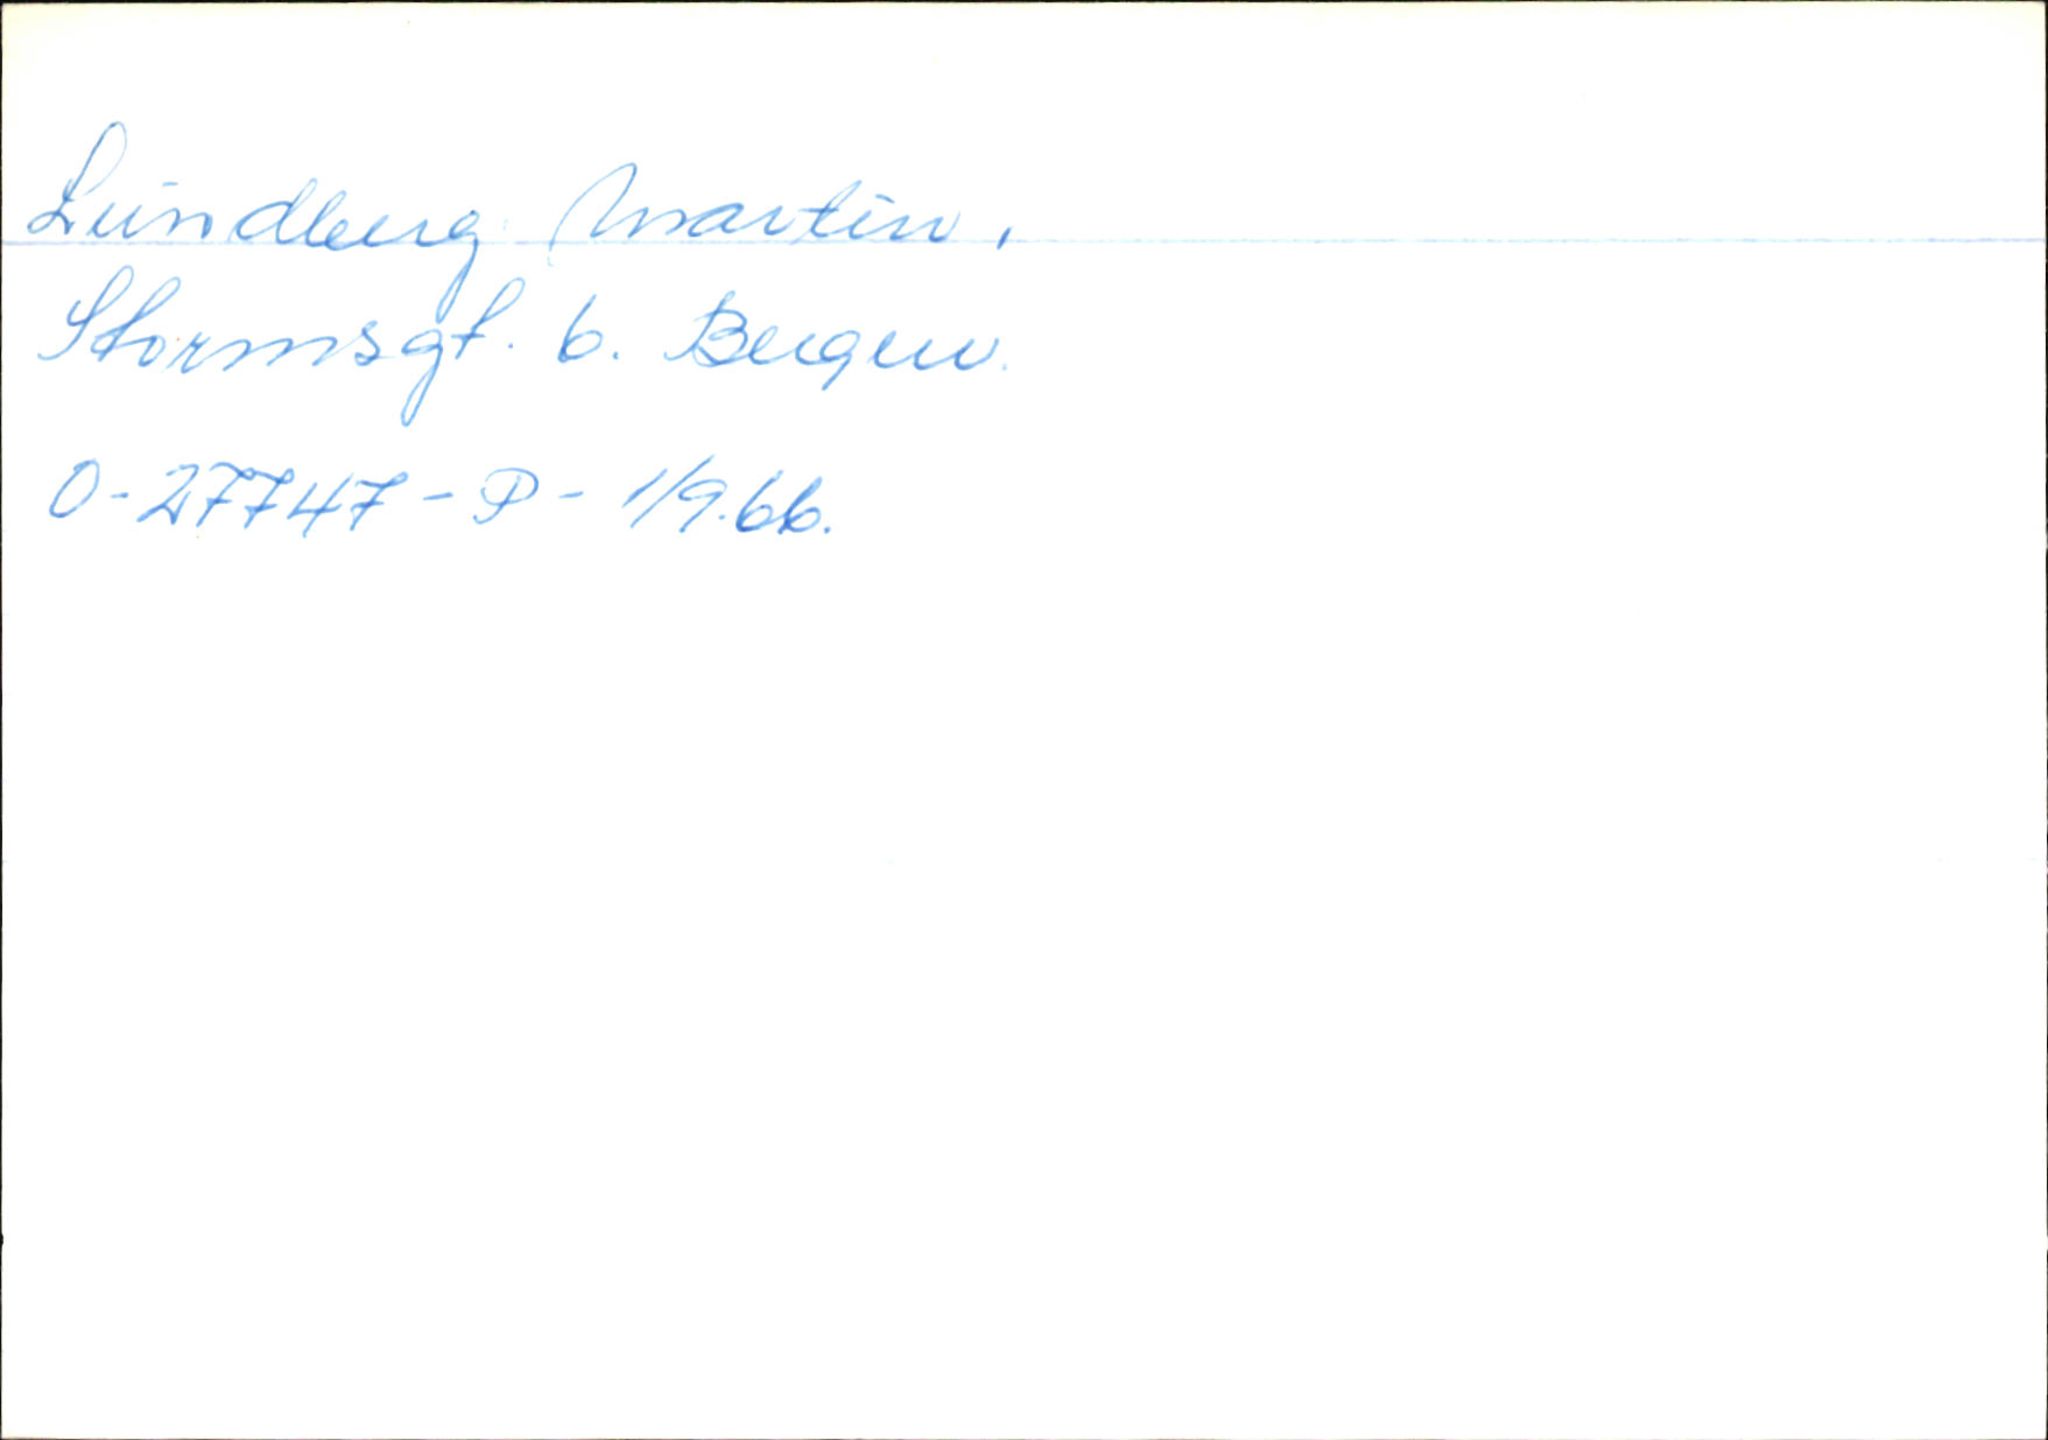 Lundberg Martin,
Stormsgt. 6. Bergen.
O-27747-P-1/9.66.